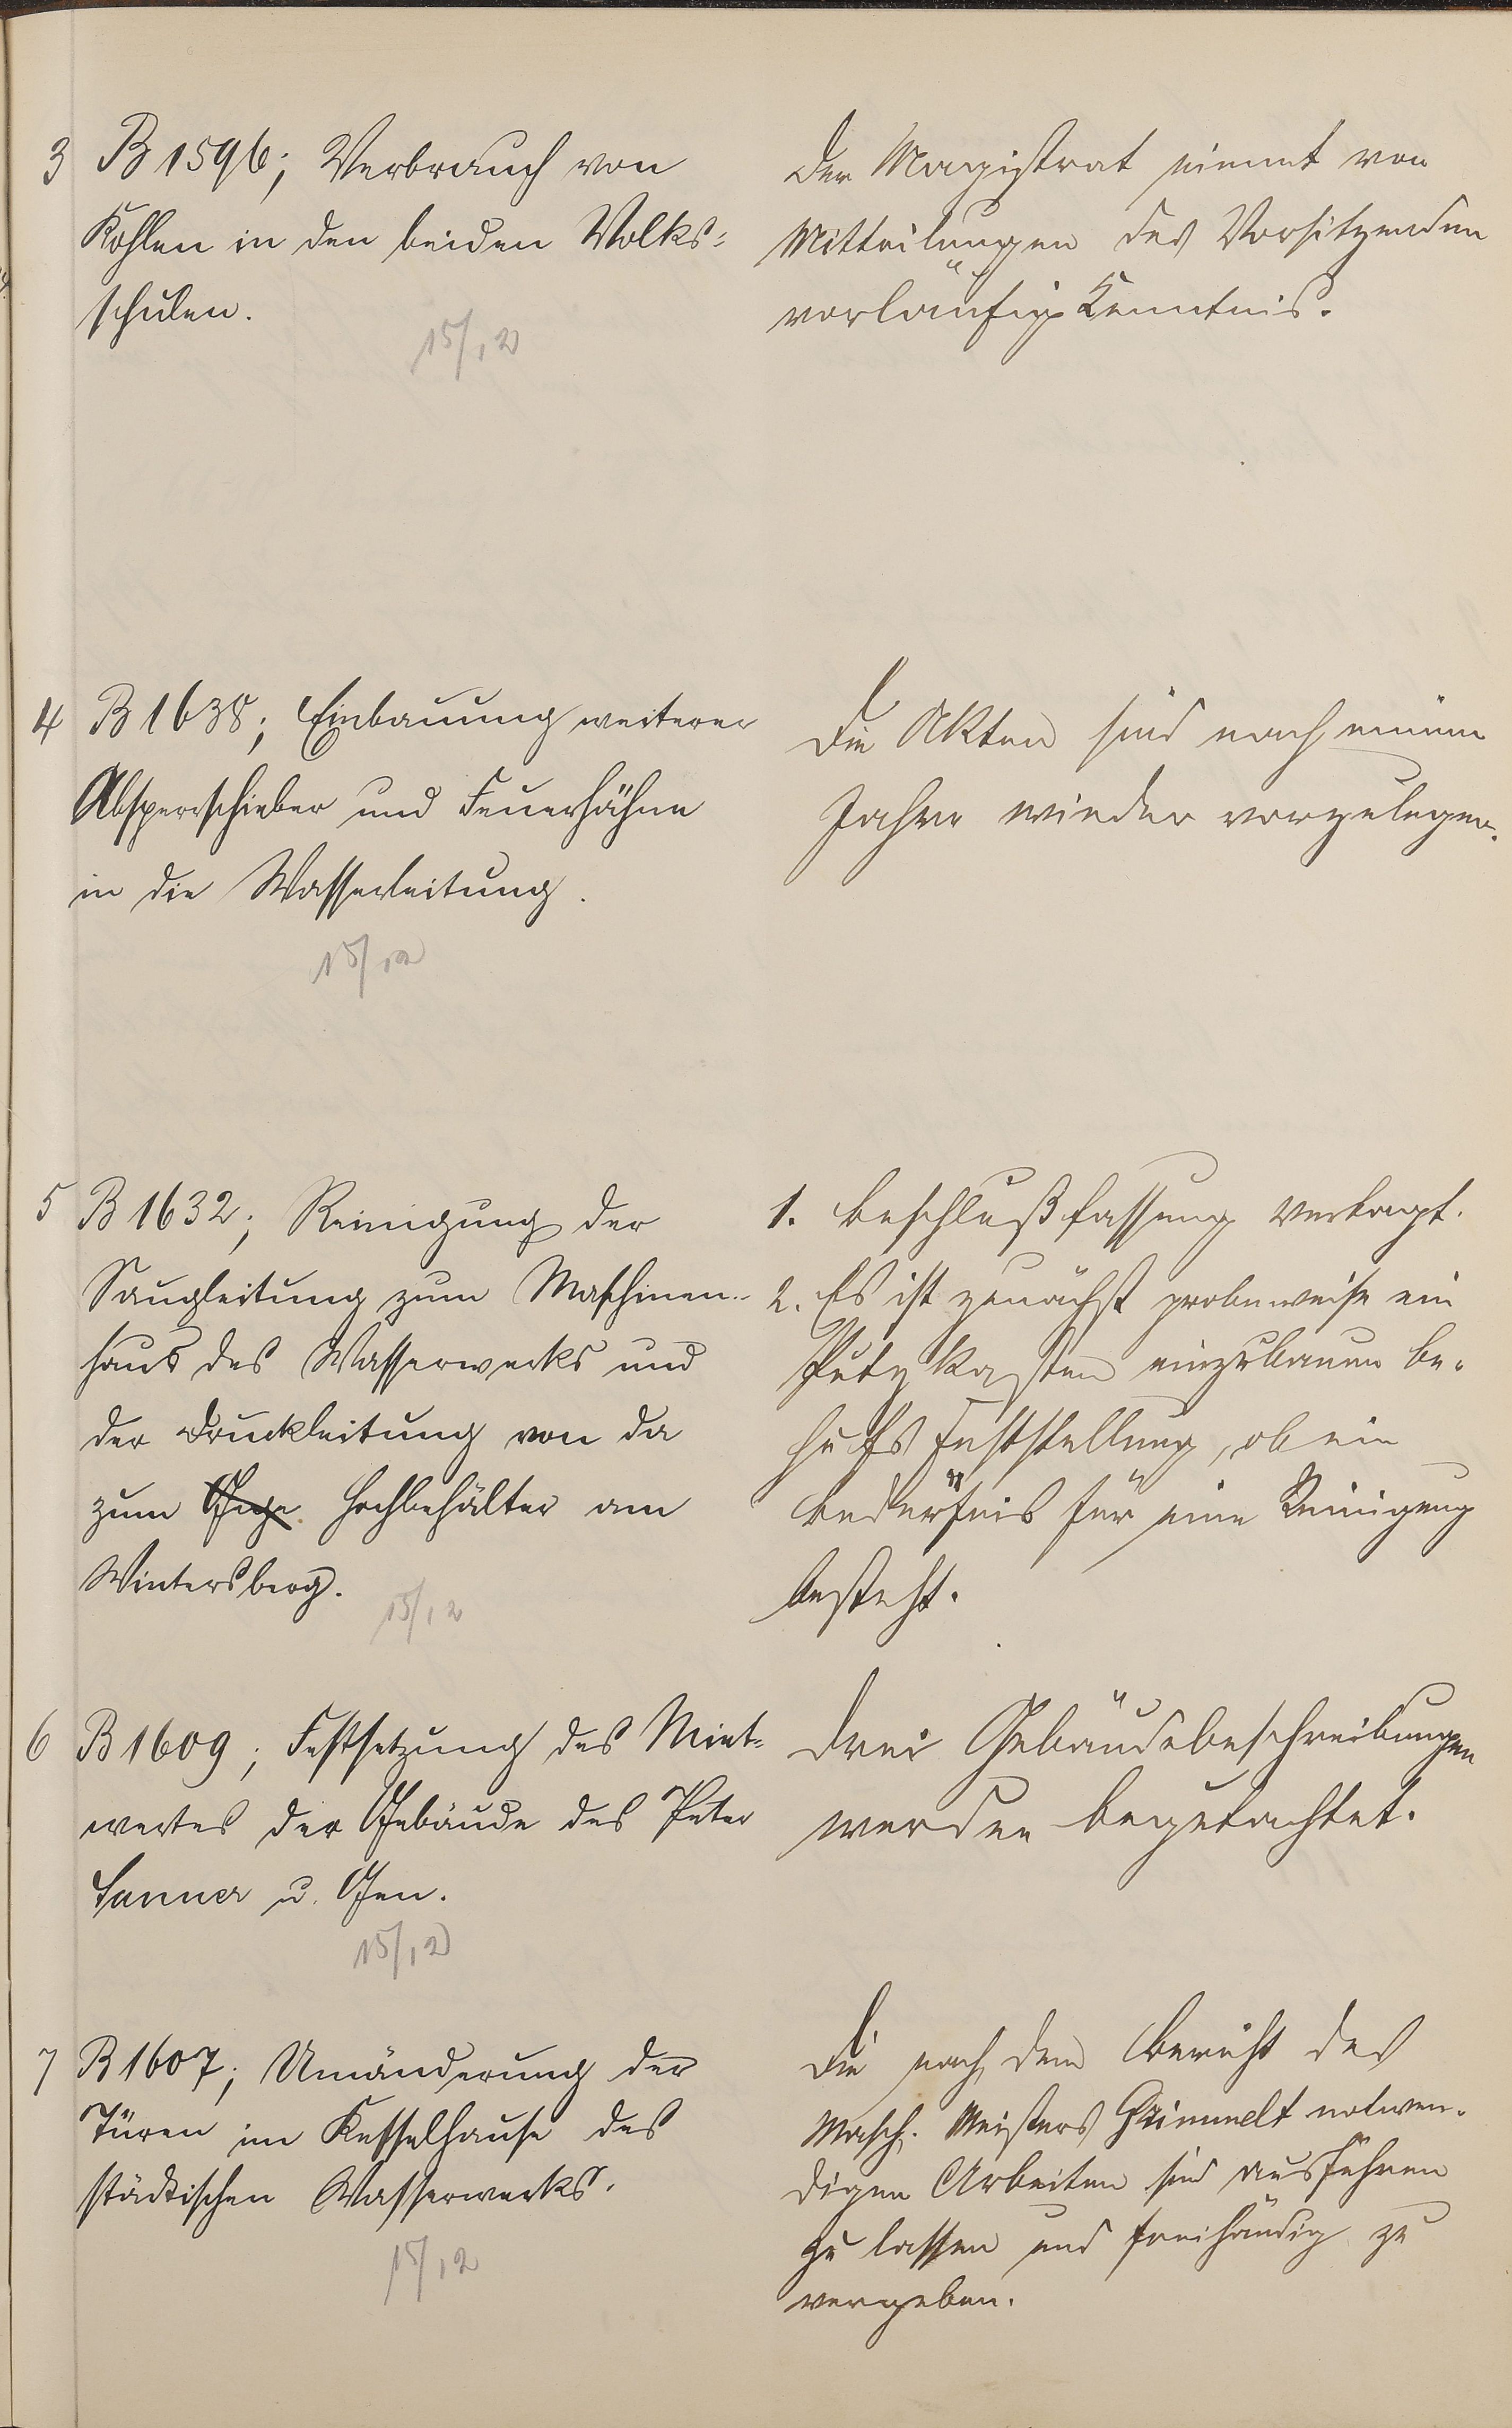 3 B 1596; Verbrauch von
Kohlen in den beiden Volks=
schulen.
15/12
Der Magistrat nimmt von
Mitteilungen des Vorsitzenden
vorläufig Kenntnis.
4 B 1638; Einbauung weiterer
Absperrschieber und Feuerhähne
in die Wasserleitung.
15/12
Die Akten sind nach einem
Jahre wieder vorzulegen.
5 B 1632; Reinigung der
Saugleitung zum Maschinen-
haus des Wasserwerks und
der Druckleitung von da
zum Hochbehälter am
Wintersberg.
15/12
1. Beschlußfassung vertagt.
2. Es ist zunächst probeweise ein
Putzkasten einzubauen be-
hufs Feststellung, ob ein
Bedürfnis für eine Reinigung
besteht.
6 B 1609; Festsetzung des Miet-
wertes der Gebäude des Peter
Sanner u. Gen.
15/12
Drei Gebäudebeschreibungen
werden begutachtet.
7 B 1607; Umänderung der
Türen im Kesselhause des
städtischen Wasserwerks.
15/12
Die nach dem Bericht des
Masch. Meisters notwen-
digen Arbeiten sind ausführen
zu lassen und freihändig zu
vergeben.